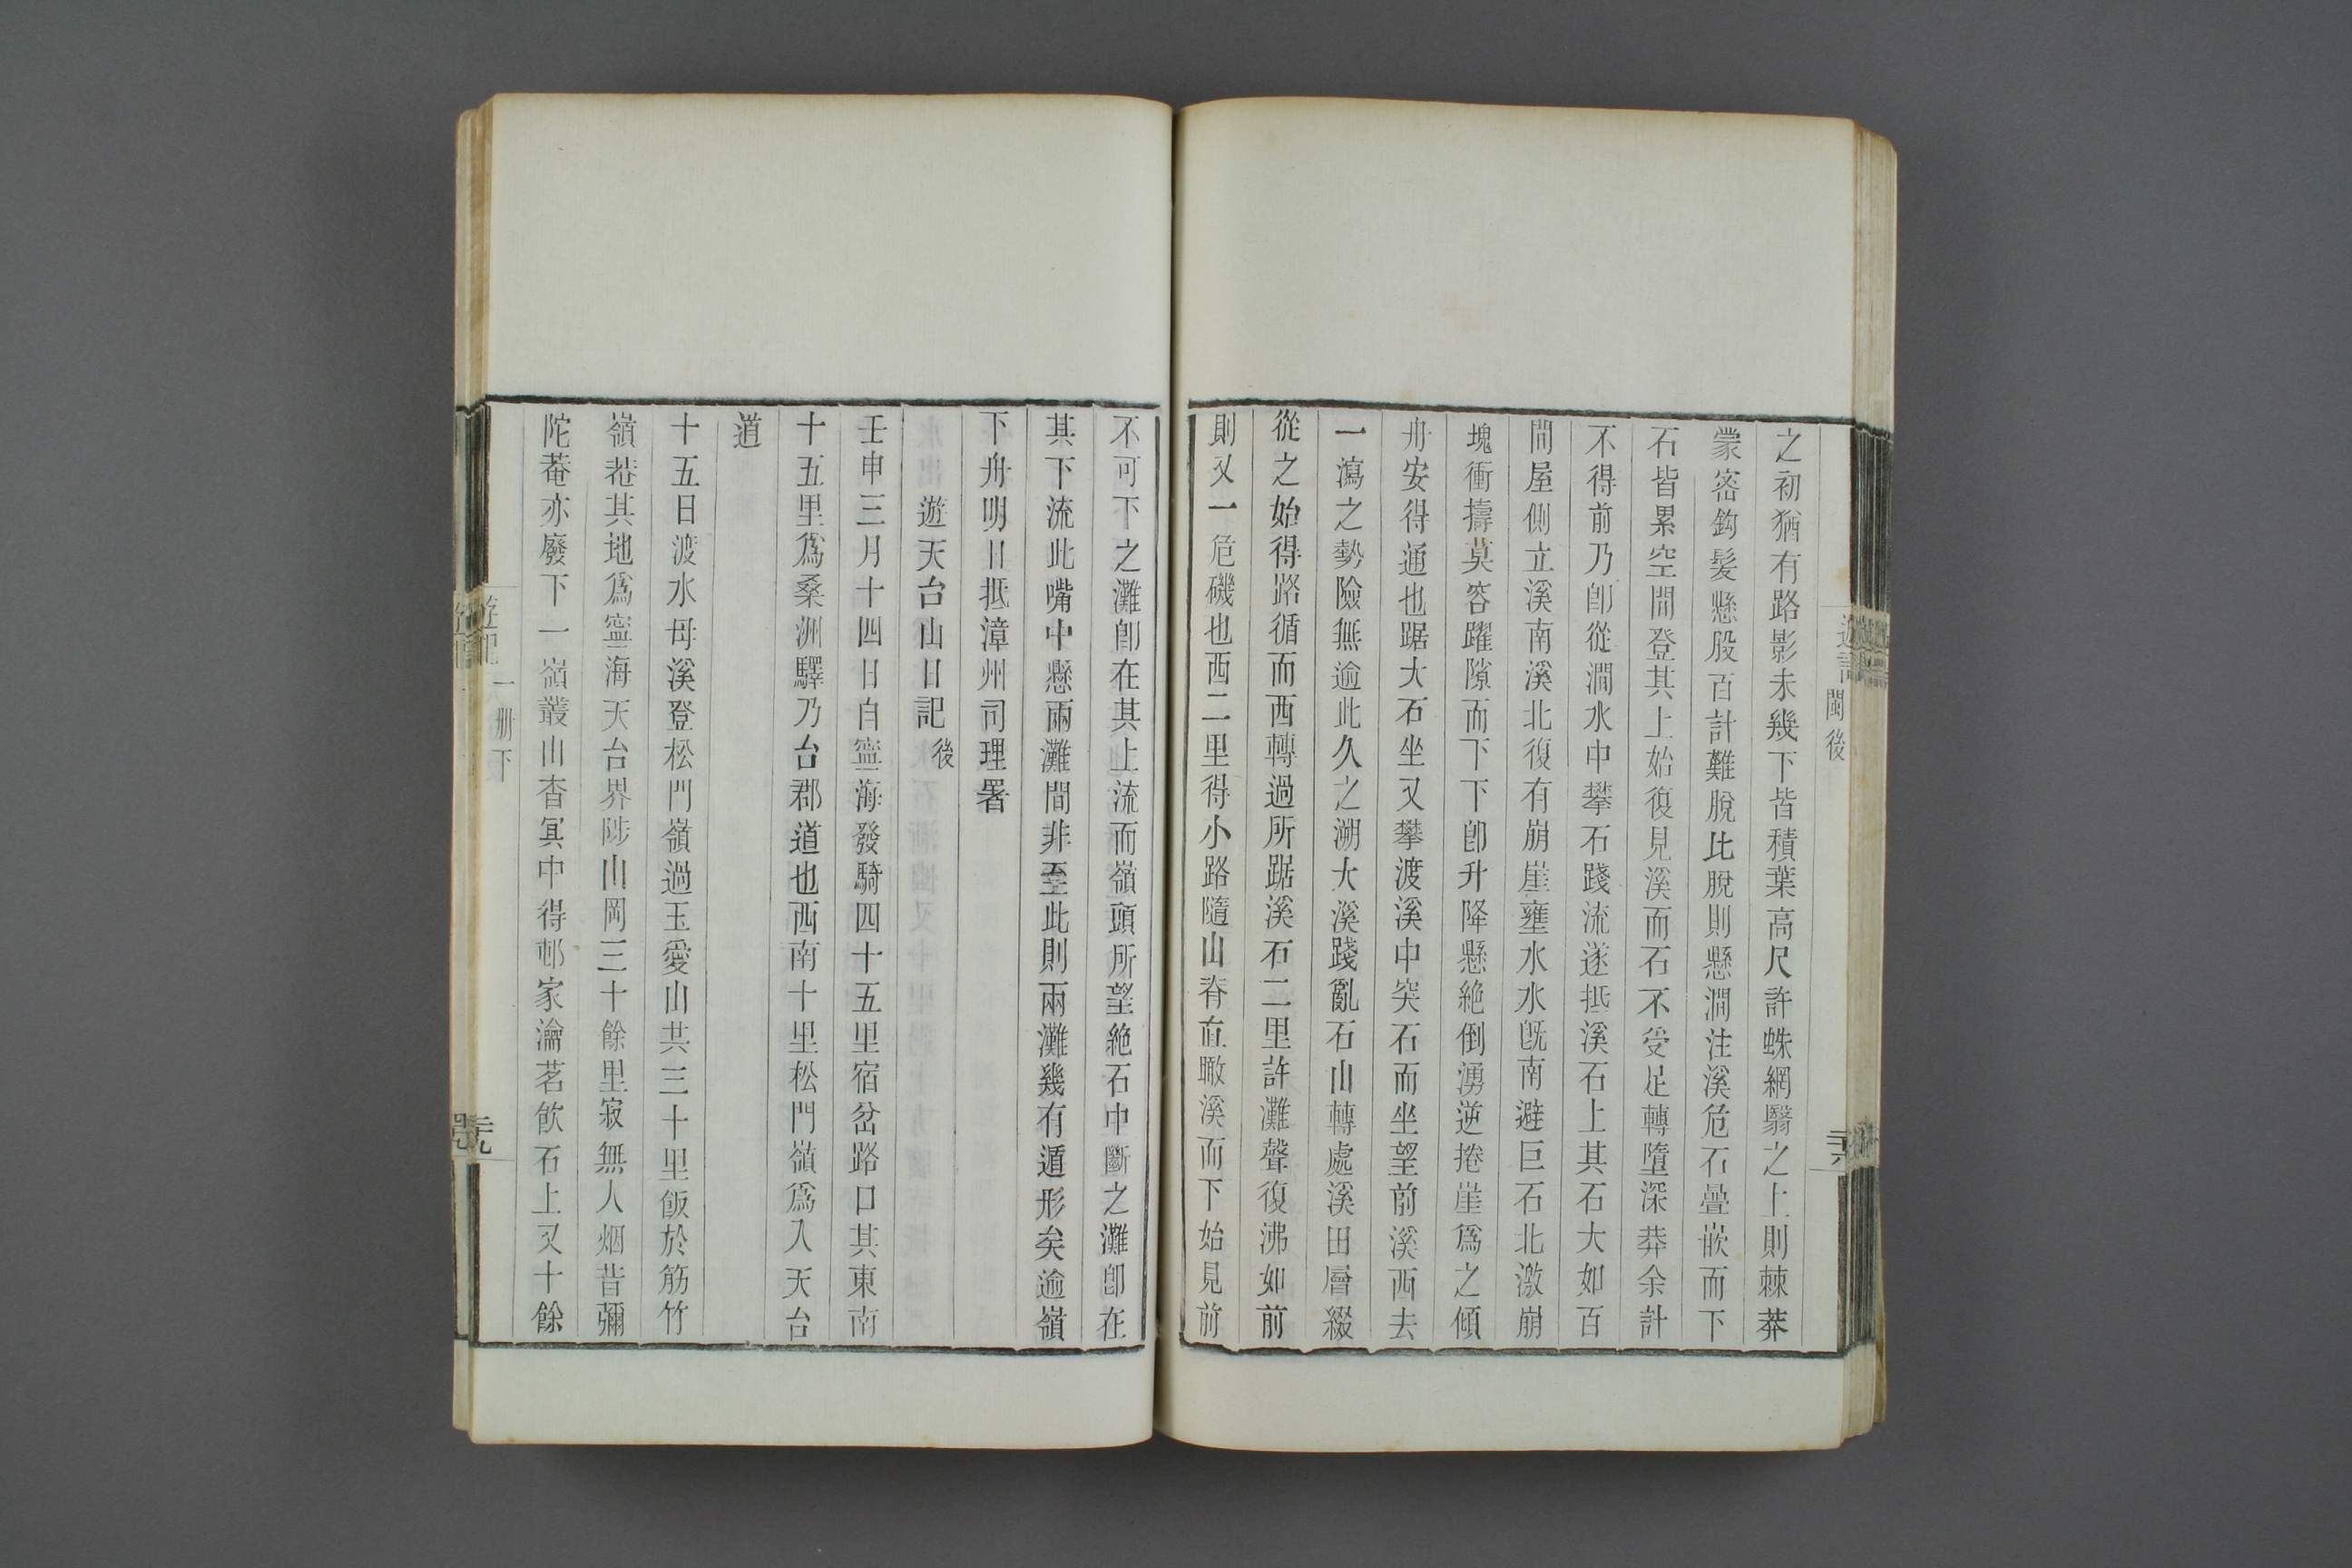 遊記
閩後
之初猶有路影未幾下皆積葉高尺許蛛網翳之上則棘莽
蒙密鈎髮懸股百計難脫比脫則懸澗注溪危石疊嵌而下
石皆累空間登其上始復見溪而石不受足轉墮深莽余計
不得前乃卽從澗水中攀石踐流遂抵溪石上其石大如百
間屋側立溪南溪北復有崩崖壅水水旣南避巨石北激崩
塊衝擣莫容躍隙而下下卽升降懸絶倒湧逆捲崖爲之傾
舟安得通也踞大石坐又攀渡溪中突石而坐望前溪西去
一瀉之勢險無逾此久之溯大溪踐亂石山轉處溪田層綴
從之始得路循而西轉過所踞溪石二里許灘聲復沸如前
則又一危磯也西二里得小路隨山脊直瞰溪而下始見前
不可下之灘卽在其上流而嶺頭所望絶石中斷之灘卽在
其下流此嘴中懸兩灘間非至此則兩灘幾有遁形矣逾嶺
下舟明日抵漳州司理署
遊天台山日記後
壬申三月十四日自寧海發騎四十五里宿岔路口其東南
十五里爲桑洲驛乃台郡道也西南十里松門嶺爲入天台
道
十五日渡水母溪登松門嶺過玉愛山共三十里飯於筋竹
嶺菴其地爲寧海天台界陟山岡三十餘里寂無人烟昔彌
陀菴亦廢下一嶺叢山杳冥中得邨家瀹茗飮石上又十餘
遊記
一册下